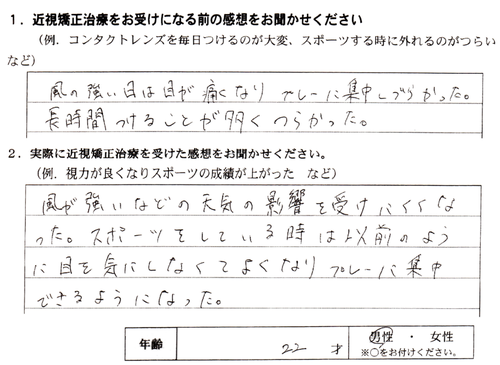 1．近視矯正治療をお受けになる前の感想をお聞かせください
（例．コンタクトレンズを毎日つけるのが大変、スポーツする時に外れるのがつらい
など）
風の強い日は目が痛くなりプレーに集中しづらかった。
長時間つけることが多くつらかった。
2．実際に近視矯正治療を受けた感想をお聞かせください。
（例．視力が良くなりスポーツの成績が上がった　など）
風が強いなどの天気の影響を受けにくくな
った。スポーツをしている時は以前のよう
に目を気にしなくてよくなりプレーに集中
できるようになった。
年齢　22才　男性　・　女性
※○をお付けください。